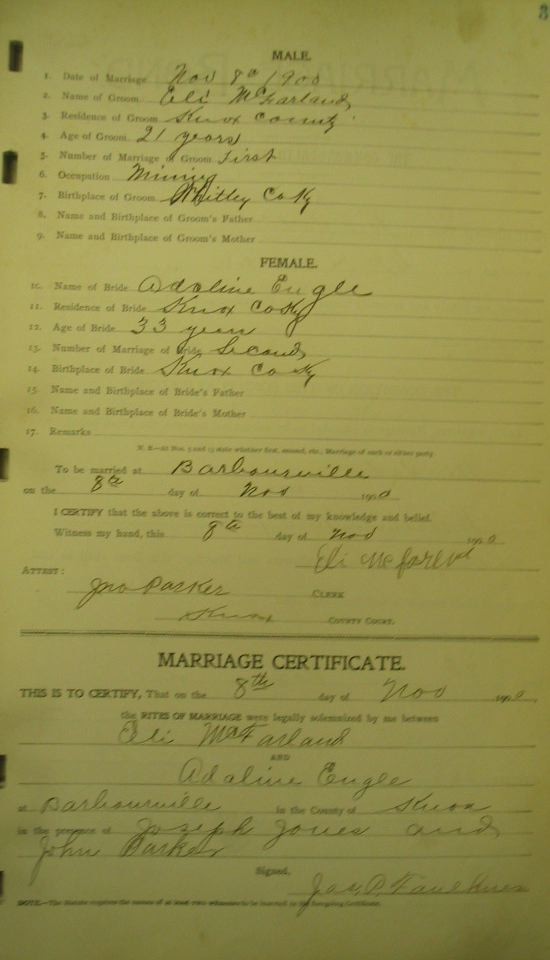 3
MALE.
1. Date of Marriage Nov 8th 1900
2. Name of Groom Eli McFarland
3. Residence of Groom Knox County
4. Age of Groom 21 years
5. Number of Marriage of Groom First
6. Occupation Mining
7. Birthplace of Groom Whitley Co Ky
8. Name and Birthplace of Groom's Father
9. Name and Birthplace of Groom's Mother
FEMALE.
10. Name of Bride Adaline Engle
11. Residence of Bride Knox Co Ky
12. Age of Bride 33 years
13. Number of Marriage of Bride Second
14. Birthplace of Bride Knox Co Ky
15. Name and Birthplace of Bride's Father
16. Name and Birthplace of Bride's Mother
17. Remarks
N. B.—At Nos. 5 and 13 state whether first, second, etc., Marriage of each or either party
To be married at Barbourville
on the 8th day of Nov 1900
I CERTIFY that the above is correct to the best of my knowledge and belief.
Witness my hand, this 8th day of Nov 1900
Eli McFarland
ATTEST:
Jno Parker CLERK
Knox COUNTY COURT.
MARRIAGE CERTIFICATE.
THIS IS TO CERTIFY, That on the 8th day of Nov 1900,
the RITES OF MARRIAGE were legally solemnized by me between
Eli McFarland
AND
Adaline Engle
at Barbourville in the County of Knox
in the presence of Joseph Jones and
John Parker
Signed,
Jas. P. Faulkner
NOTE.—The Statute requires the names of at least two witnesses to be inserted in the foregoing Certificate.